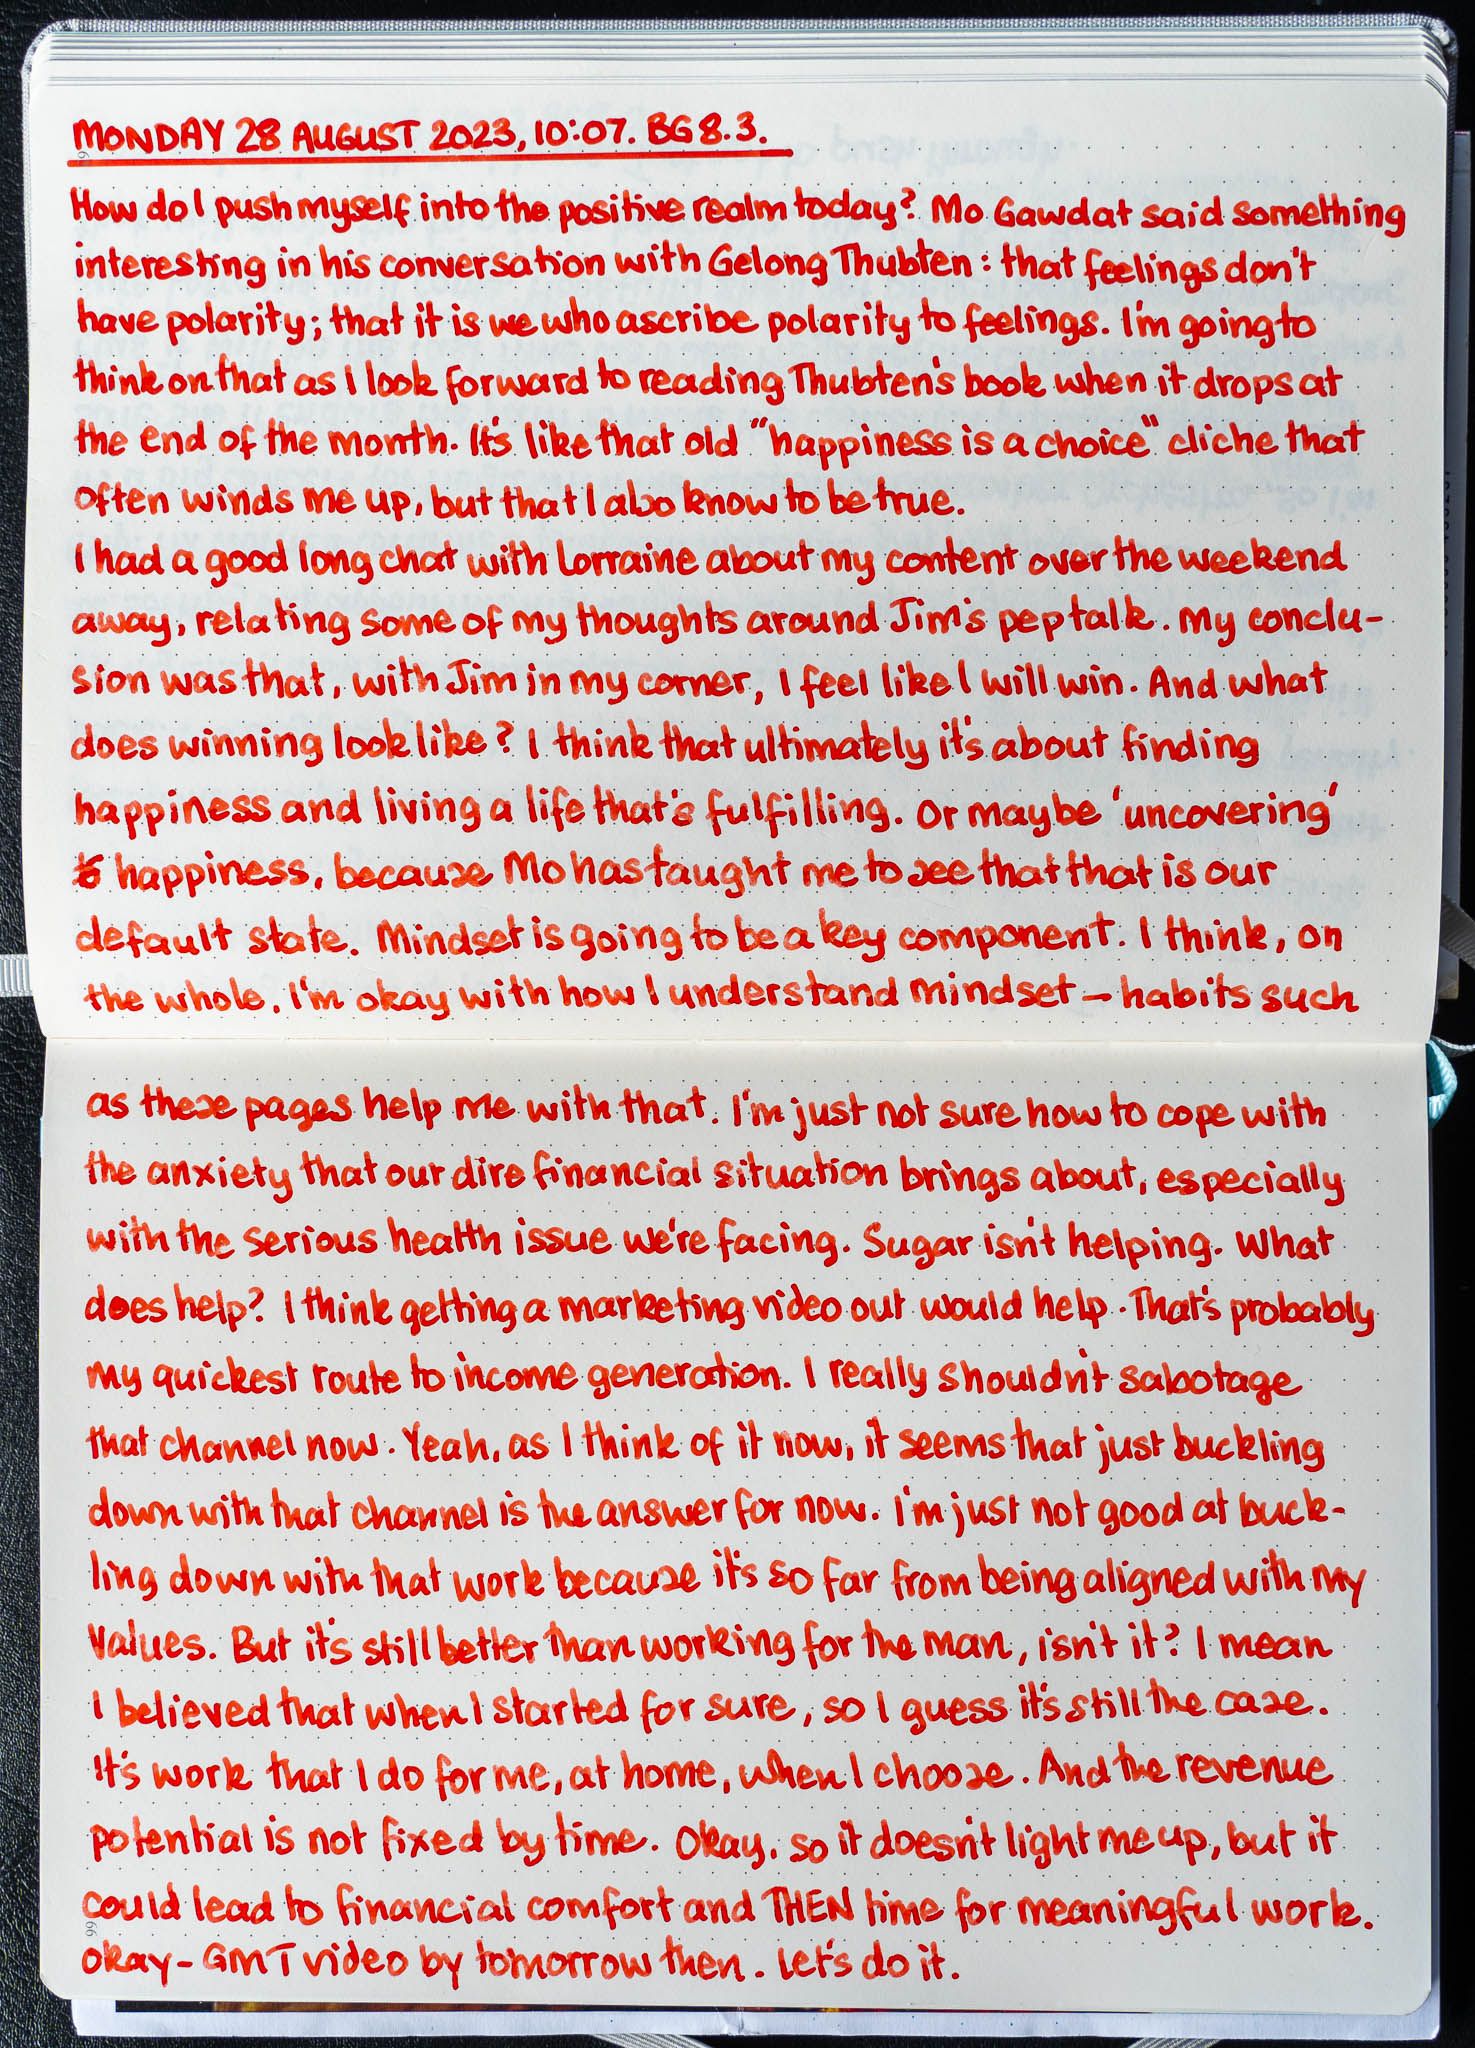 MONDAY 28 AUGUST 2023, 10:07. BG 8.3.
How do I push myself into the positive realm today? Mo Gawdat said something
interesting in his conversation with Gelong Thubten: that feelings don't
have polarity; that it is we who ascribe polarity to feelings. I'm going to
think on that as I look forward to reading Thubten's book when it drops at
the end of the month. It's like that old "happiness is a choice" cliche that
often winds me up, but that I also know to be true.
I had a good long chat with Lorraine about my content over the weekend
away, relating some of my thoughts around Jim's pep talk. My conclu-
sion was that, with Jim in my corner, I feel like I will win. And what
does winning look like? I think that ultimately it's about finding
happiness and living a life that's fulfilling. Or maybe 'uncovering'
happiness, because Mo has taught me to see that that is our
default state. Mindset is going to be a key component. I think, on
the whole, I'm okay with how I understand mindset – habits such
as these pages help me with that. I'm just not sure how to cope with
the anxiety that our dire financial situation brings about, especially
with the serious health issue we're facing. Sugar isn't helping. What
does help? I think getting a marketing video out would help. That's probably
my quickest route to income generation. I really shouldn't sabotage
that channel now. Yeah, as I think of it now, it seems that just buckling
down with that channel is the answer for now. I'm just not good at buck-
ling down with that work because it's so far from being aligned with my
values. But it's still better than working for the man, isn't it? I mean
I believed that when I started for sure, so I guess it's still the case.
It's work that I do for me, at home, when I choose. And the revenue
potential is not fixed by time. Okay, so it doesn't light me up, but it
could lead to financial comfort and THEN time for meaningful work.
99
Okay – GMT video by tomorrow then. Let's do it.